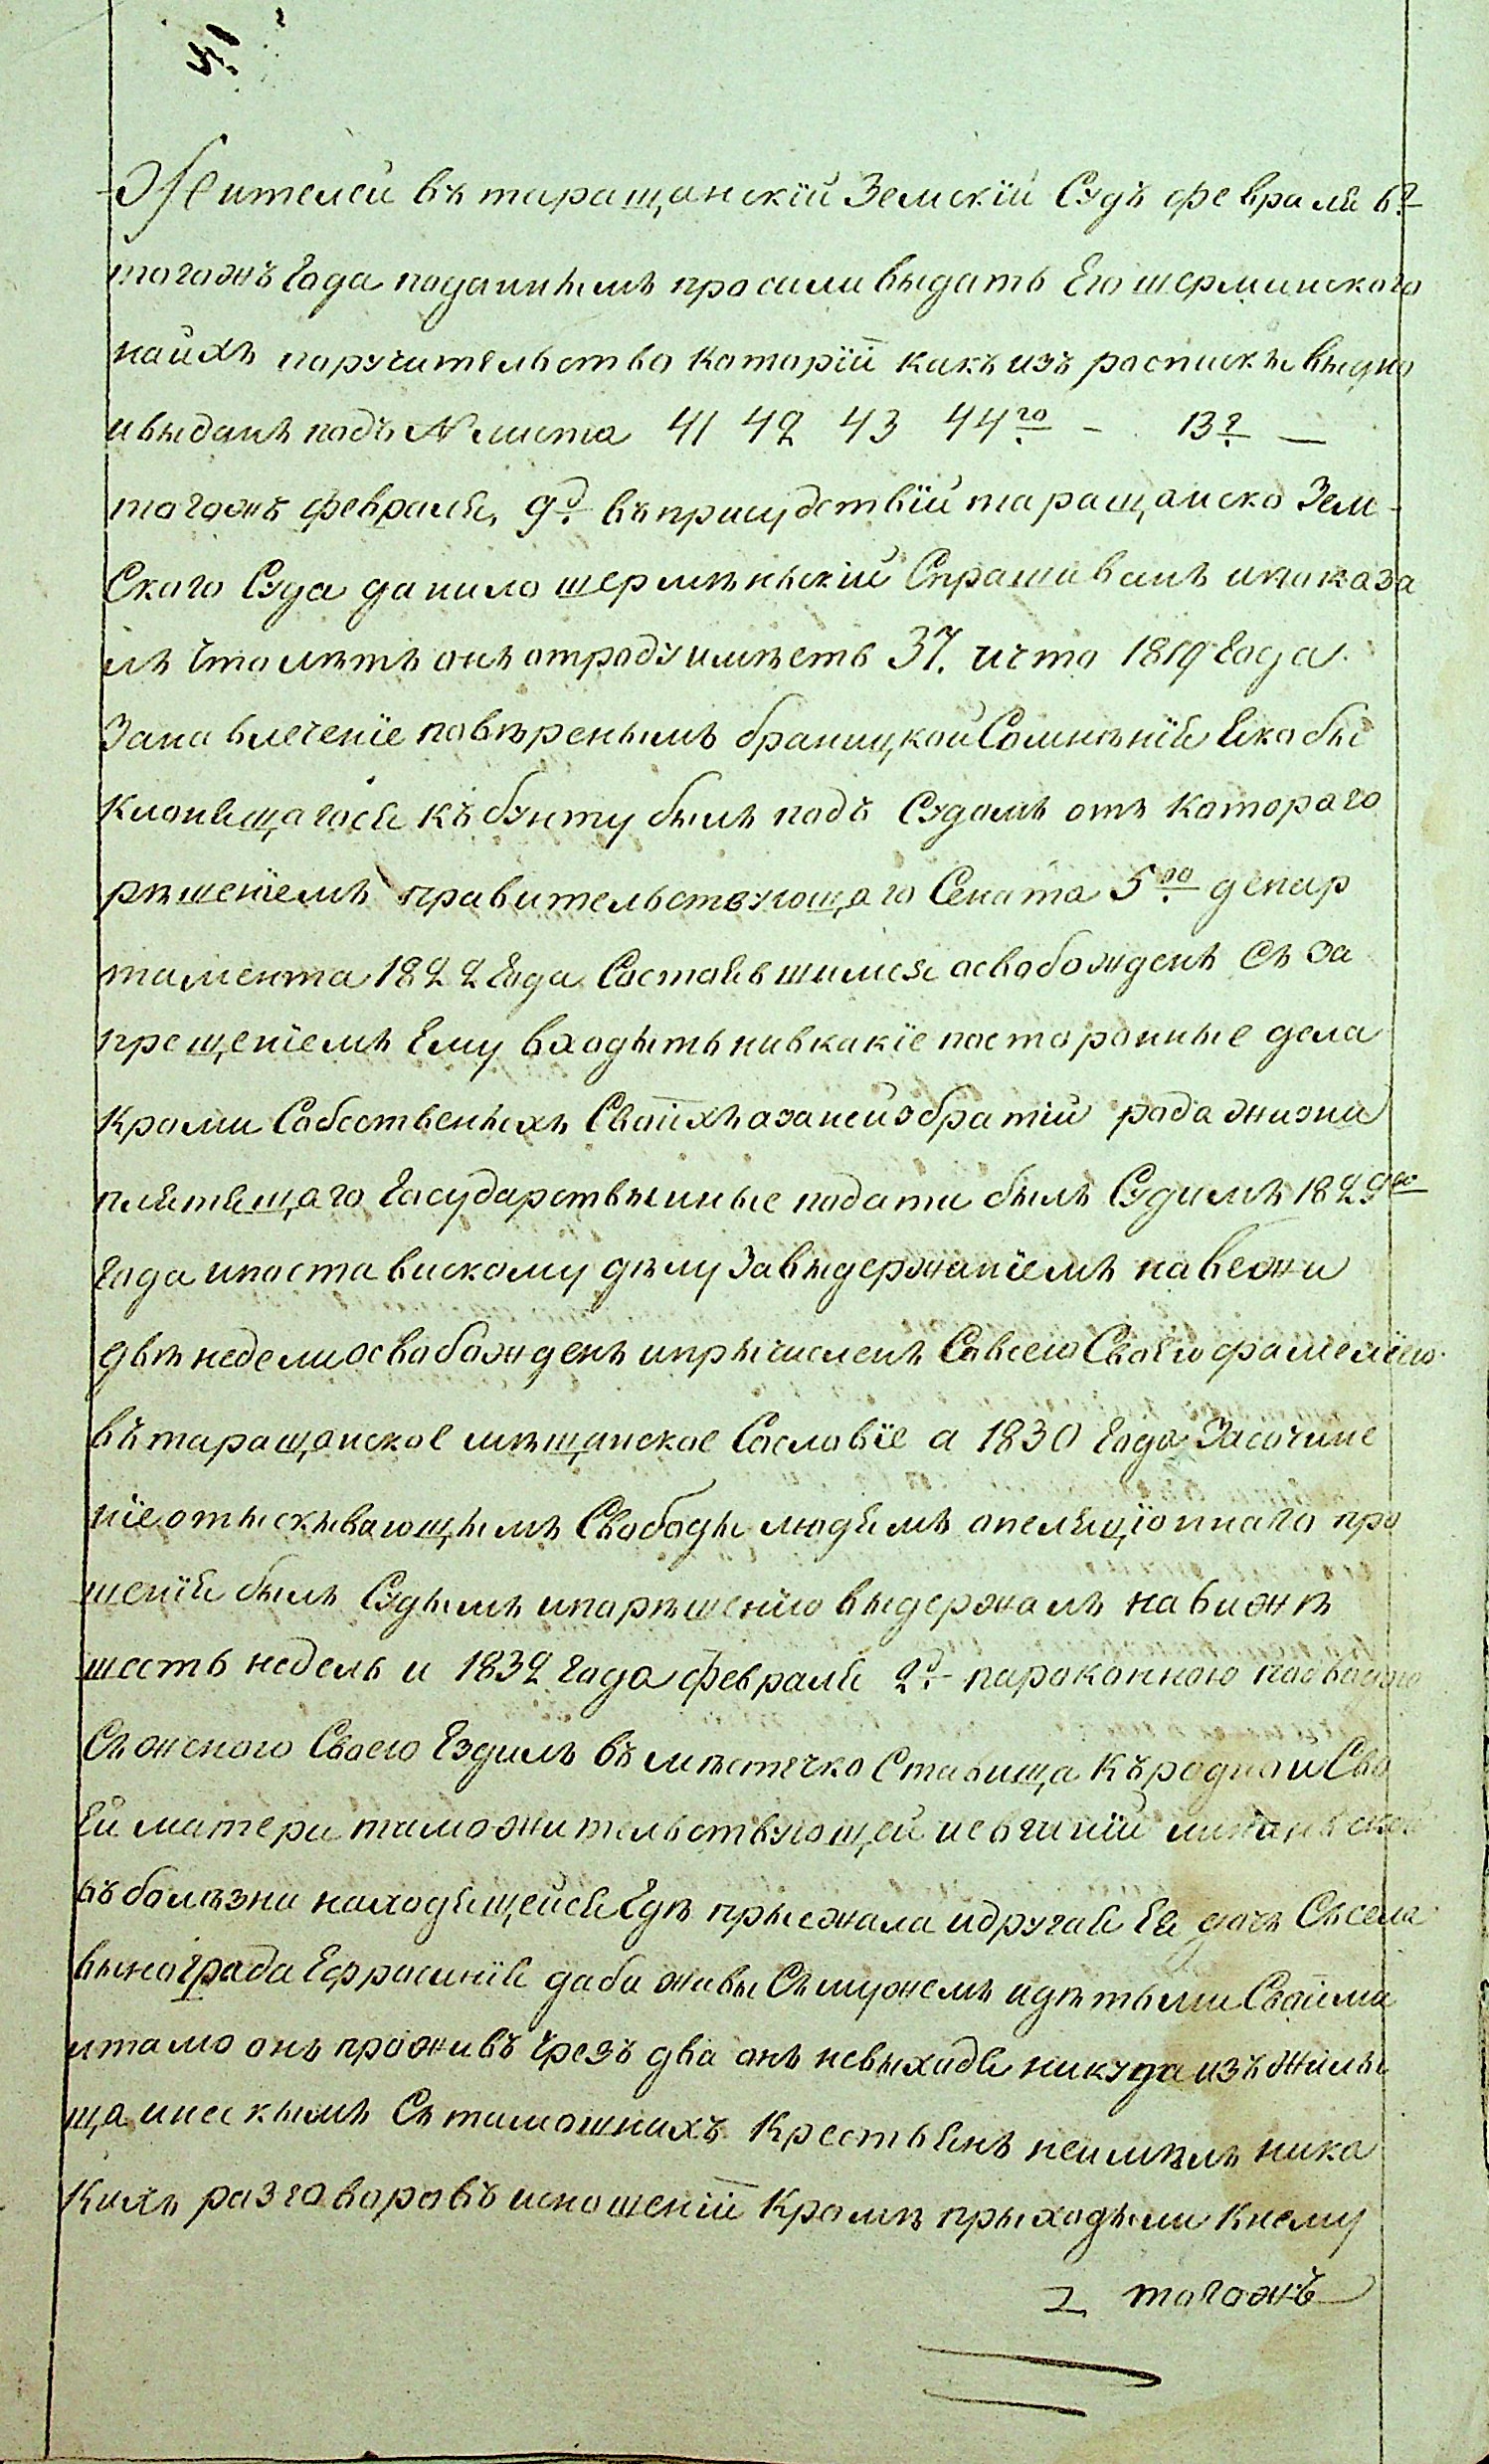 Жителей въ таращанскій Земскій Судъ февраля 6?
тогожъ Года поданнымъ просили выдать Его шерминского
наихъ поручительство которій какъ изъ роспискы выдно
и выданъ подъ № листа 41 42 43 44го - 13? —
тогожъ февраля, 9д въ присудствіи таращанско Зем-
Ского Суда данило шермѣньскій Спрашиванъ и показа
лъ что лѣтъ онъ отроду имѣетъ 37. и что 1819 Года
Запа влеченіе повѣренымъ браницкой Сомнѣнія Якобы
Клонящагося къ бунту былъ подъ Судомъ отъ Котораго
рѣшеніемъ правительствующаго Сената 5го депар
тамента 1822 Года Состоявшимся освобожденъ Съ за
прещеніемъ Ему входыть нивкакіе посторонные дела
Кроми Собственыхъ Своихъ а за неизбратій рода жизни
плятящаго Государствынные подати былъ Судимъ 1829го
Года и поставискому дѣлу За выдержаніемъ на вежи
двѣ недели освобожденъ и прычисленъ Совсею Своею фамеліею
въ таращанское мѣщанское Сословіе а 1830 Года За сочине
ніе отыскывающымъ Свободы людямъ опеляціонного про
шенія былъ Судымъ и порѣшенію выдержалъ на вижѣ
шесть недель и 1832 Года февраля 2д пароконною подводою
Съ женою Своею Ездилъ въ мѣстечко Ставища Къ родной Сво
Ей матери таможительствующей иевгиній
въ болѣзни находящейся Где прыежала и другая Ея дочь Съ села
вынограда Ефросинія дабы живы Съ мужемъ и дѣтьми Своими
и тамо онъ проживъ Чрезъ два онъ невыходя никуда изъ жилы
ща и нескымъ Съ тамошнихъ Крестьянъ неимѣлъ ника
Кихъ разговоровъ и сношеній Кромѣ прыходыли Кнему
2 тогожъ